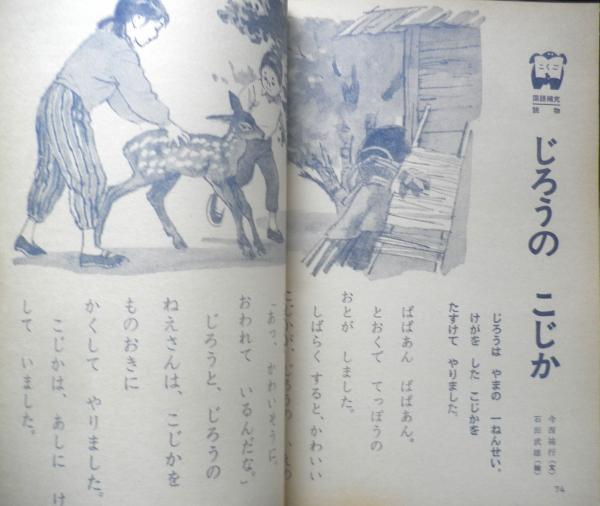 こくご
国語補充
読物
じろうの こじか
今西祐行(文)
石田武雄(絵)
じろうは やまの 一ねんせい。
けがを した こじかを
たすけて やりました。
ばばあん ばばあん。
とおくで てっぽうの
おとが しました。
しばらく すると、かわいい
こじかが、じろうの いえの
「あっ、かわいそうに。
おわれて いるんだな。」
じろうと、じろうの
ねえさんは、こじかを
ものおきに
かくして やりました。
こじかは、あしに け
して いました。
74